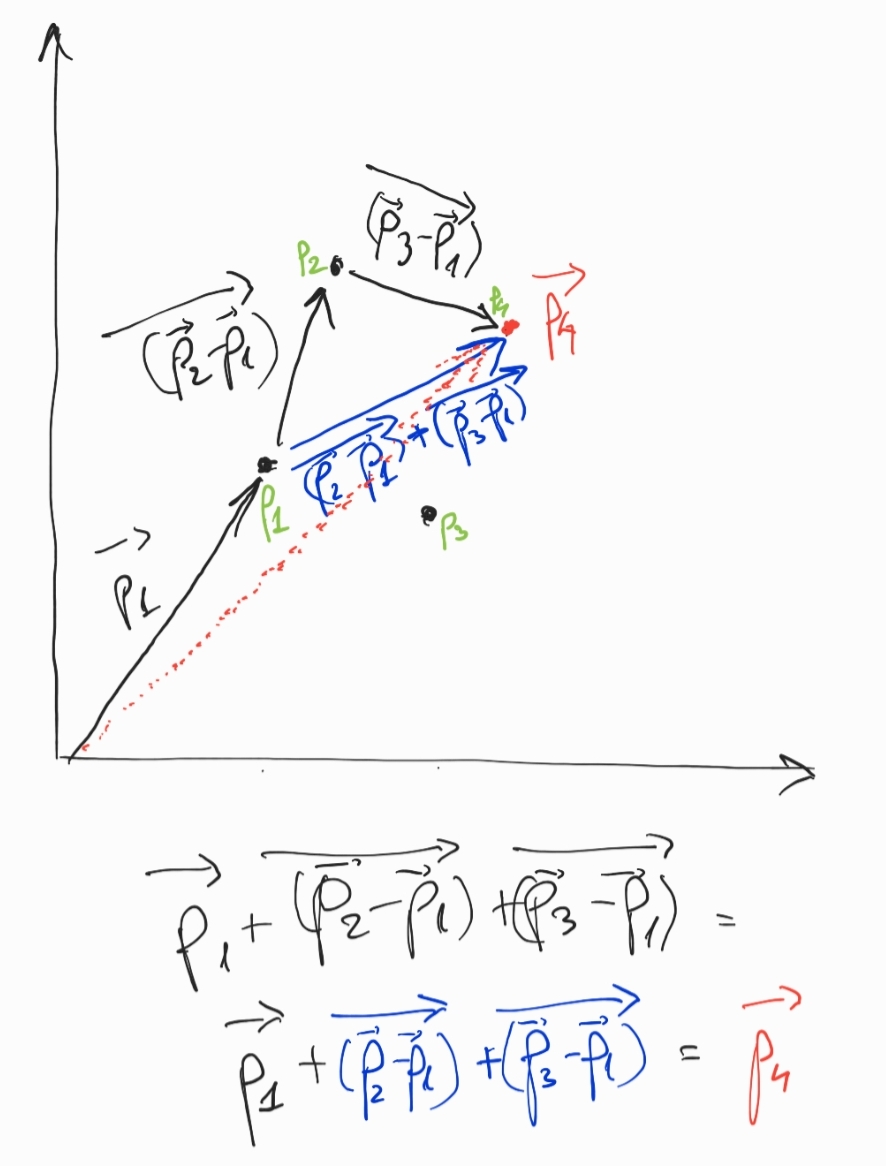 (p⃗₃-p⃗₁)
p₂
p₄
p⃗₄
(p⃗₂-p⃗₁)
(p⃗₂ p⃗₁)+(p⃗₃ p⃗₁)
p₁
p₃
p⃗₁
p⃗₁+(p⃗₂-p⃗₁)+(p⃗₃-p⃗₁) =
p⃗₁+(p⃗₂-p⃗₁)+(p⃗₃-p⃗₁) = p⃗₄